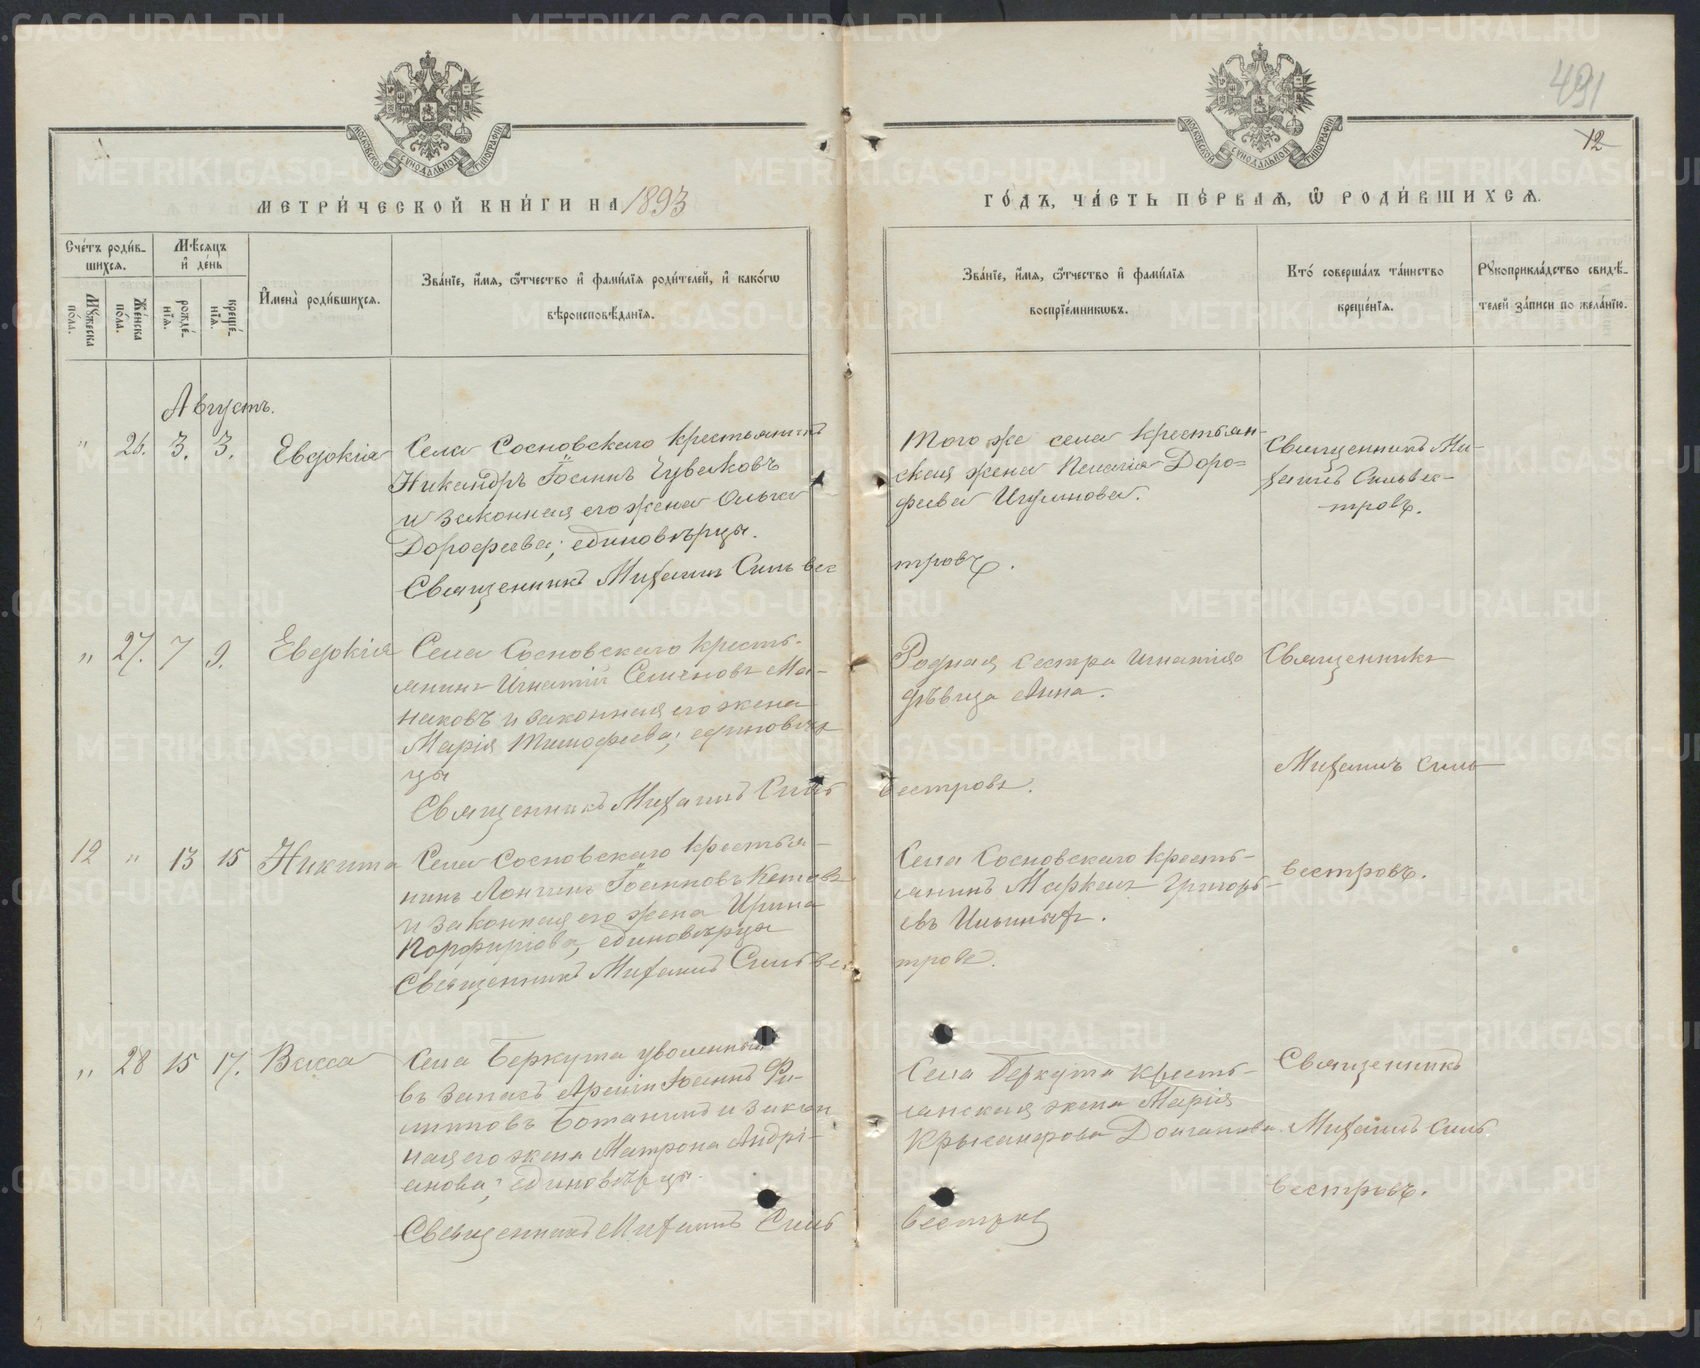 491
12
МЕТРИ́ЧЕСКОЙ КНИ́ГИ НА 1893
ГО́ДЪ, ЧА́СТЬ ПЕ́РВАѦ, Ѽ РОДИ́ВШИХСѦ.
Сче́тъ роди́в-
шихсѧ.
Му́жеска по́ла.
Же́нска по́ла.
Мѣ́сѧцъ
и҆ де́нь
рожде́-
нїѧ.
креще́-
нїѧ.
И҆мена̀ роди́вшихсѧ.
Зва́нїе, и҆́мѧ, ѻ҆́тчество и҆ фами́лїѧ роди́телей, и҆ како́гѡ
вѣроисповѣ́данїѧ.
Зва́нїе, и҆́мѧ, ѻ҆́тчество и҆ фами́лїѧ
воспрїе́мникѡвъ.
Кто́ соверша́лъ та́инство
креще́нїѧ.
Рꙋкоприкла́дство свидѣ́-
телей за́писи по жела́нїю.
Августъ.
" 26. 3. 3. Евдокія
Села Сосновскаго крестьянинъ
Никандръ Іоанновъ Чуваковъ
и законная его жена Ольга
Дорофеева; единовѣрцы.
Священникъ Михаилъ Сильвес
Того же села крестьян-
ская жена Пелагія Доро=
феева
тровъ.
Священникъ Ми-
хаилъ Сильвес-
тровъ.
" 27. 7 9. Евдокія
Села Сосновскаго кресть-
янинъ Игнатій Семеновъ Ма-
наковъ и законная его жена
Марія Тимофеева; единовѣр
цы
Священникъ Михаилъ Силь
Родная сестра Игнатія
дѣвица Анна.
вестровъ.
Священникъ
Михаилъ Силь
вестровъ.
12 " 13 15 Никита
Села Сосновскаго крестья-
нинъ Лонгинъ Іоанновъ
и законная его жена Ирина
Порфирьева, единовѣрцы
Священникъ Михаилъ Сильвес
Села Сосновскаго кресть-
янинъ Маркелъ Григорь-
евъ Ильиныхъ.
тровъ.
" 28 15 17. Васса
Села Беркута уволенный
въ запасъ Арміи Іоаннъ Фи-
липповъ Ботанинъ и закон
ная его жена Матрона Андрі-
анова; единовѣрцы.
Священникъ Михаилъ Силь
Села Беркута кресть-
янская жена Марія
Долганова
вестровъ
Священникъ
Михаилъ Силь
вестровъ.
METRIKI.GASO-URAL.RU